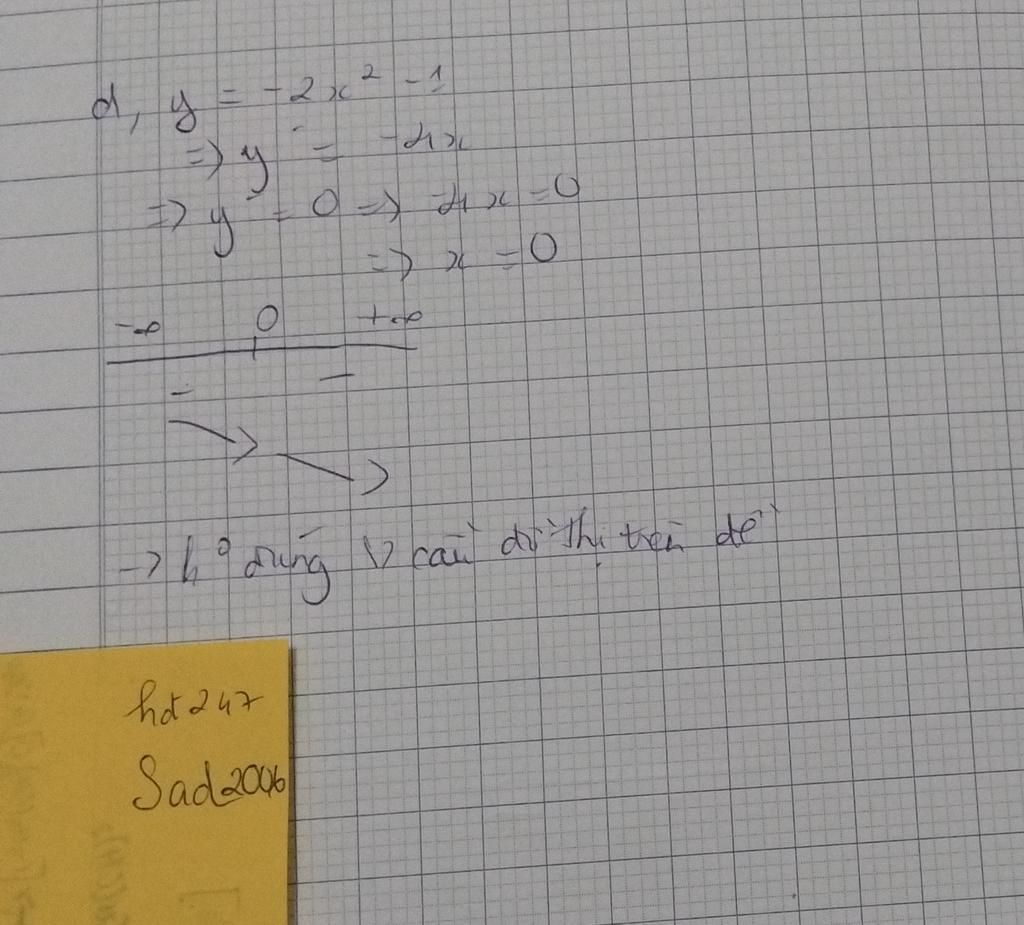 d, y = -2x² - 1
=> y' = -4x
=> y' = 0 => -4x = 0
=> x = 0
-∞ 0 +∞
- -
-> k° đúng vs câu đồ thị trên đề
hd247
Sad2006